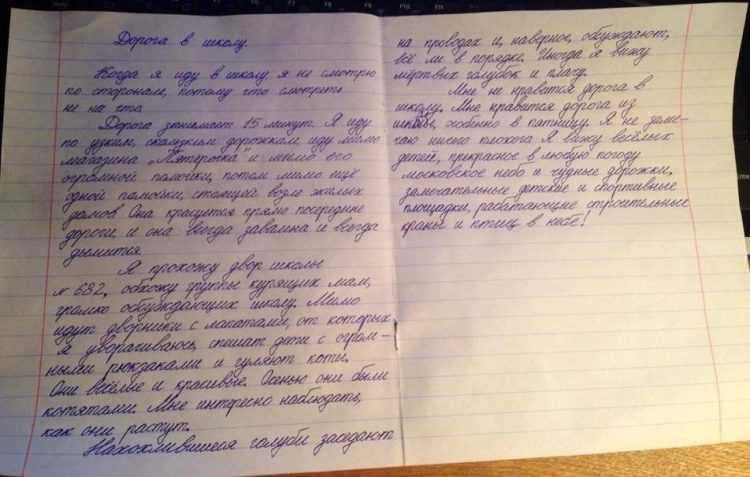 Дорога в школу.
Когда я иду в школу я не смотрю
по сторонам, потому что смотреть
не на что.
Дорога занимает 15 минут. Я иду
по узким, скользким дорожкам, иду мимо
магазина "Пятёрочка" и мимо его
огромной помойки, потом мимо ещё
одной помойки, стоящей возле жилых
домов. Она красуется прямо посередине
дороги и она всегда завалена и всегда
дымится.
Я прохожу двор школы
№ 682, обхожу группы курящих мам,
громко обсуждающих школу. Мимо
идут дворники с лапатами, от которых
я уварачиваюсь, спешат дети с огром-
ными рюкзаками и гуляют коты.
Они весёлые и красивые. Осенью они были
котятами. Мне интересно наблюдать,
как они растут.
Нахохлившиеся голуби заседают
на проводах и, наверное, обсуждают,
всё ли в порядке. Иногда я вижу
мёртвых голубок и плачу.
Мне не нравится дорога в
школу. Мне нравится дорога из
школы, особенно в пятницу. Я не заме-
чаю ничего плохого. Я вижу весёлых
детей, прикрасное в любую погоду
московское небо и чудные дорожки,
замечательные детские и спортивные
площадки, работающие строительные
краны и птиц в небе!